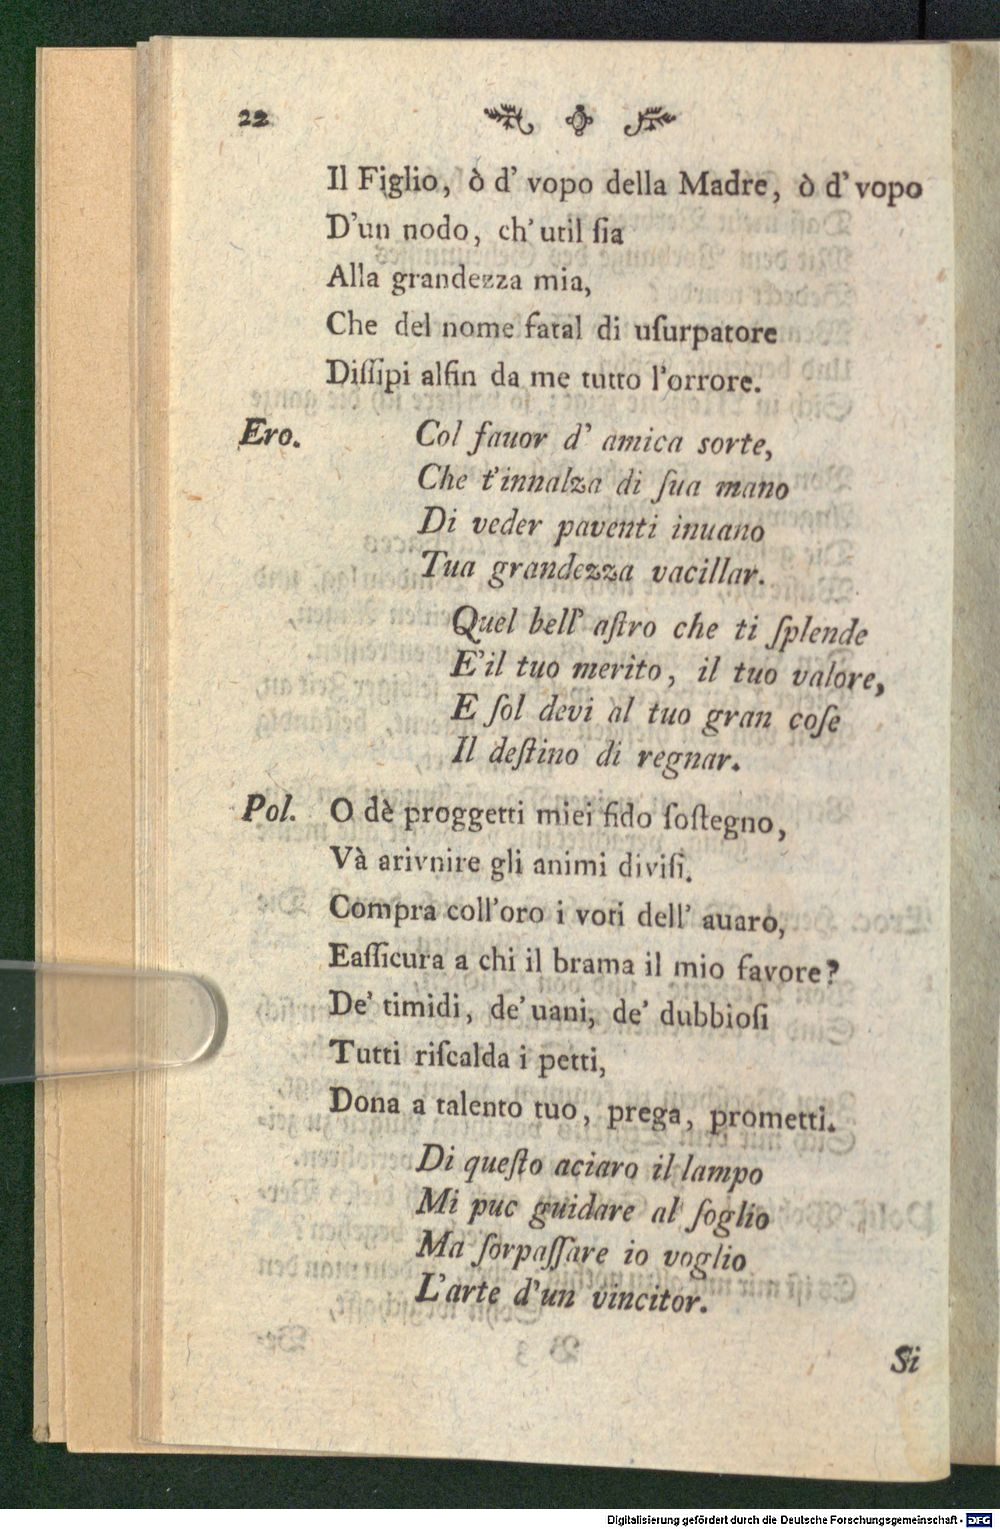 22
Il Figlio, ò d' vopo della Madre, ò d' vopo
D'un nodo, ch' util ſia
Alla grandezza mia,
Che del nome fatal di uſurpatore
Diſſipi alfin da me tutto l'orrore.
Ero. Col fauor d' amica sorte,
Che t'innalza di ſua mano
Di veder paventi inuano
Tua grandezza vacillar.
Quel bell' aſtro che ti ſplende
E'il tuo merito, il tuo valore,
E ſol devi al tuo gran coſe
Il deſtino di regnar.
Pol. O dè proggetti miei fido ſoſtegno,
Và arivnire gli animi diviſi.
Compra coll'oro i voti dell' auaro,
Eaſſicura a chi il brama il mio favore?
De' timidi, de' uani, de' dubbioſi
Tutti riſcalda i petti,
Dona a talento tuo, prega, prometti.
Di queſto aciaro il lampo
Mi puc guidare al ſoglio
Ma ſorpaſſare io voglio
L'arte d'un vincitor.
Si
Digitalisierung gefördert durch die Deutsche Forschungsgemeinschaft - DFG